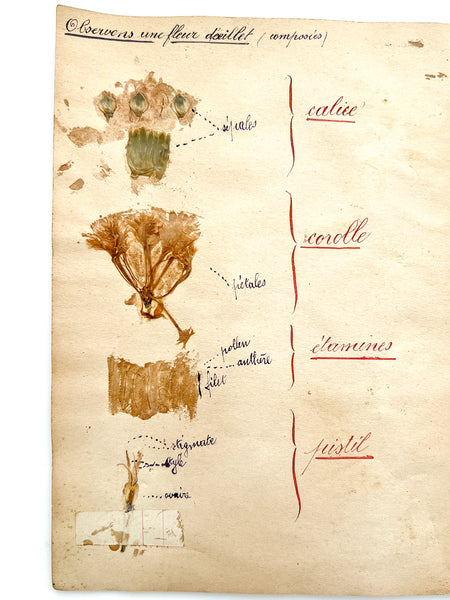 Observons une fleur d'œillet (composés)
sépales
calice
pétales
corolle
pollen
anthère
filet
étamines
stigmate
style
ovaire
pistil